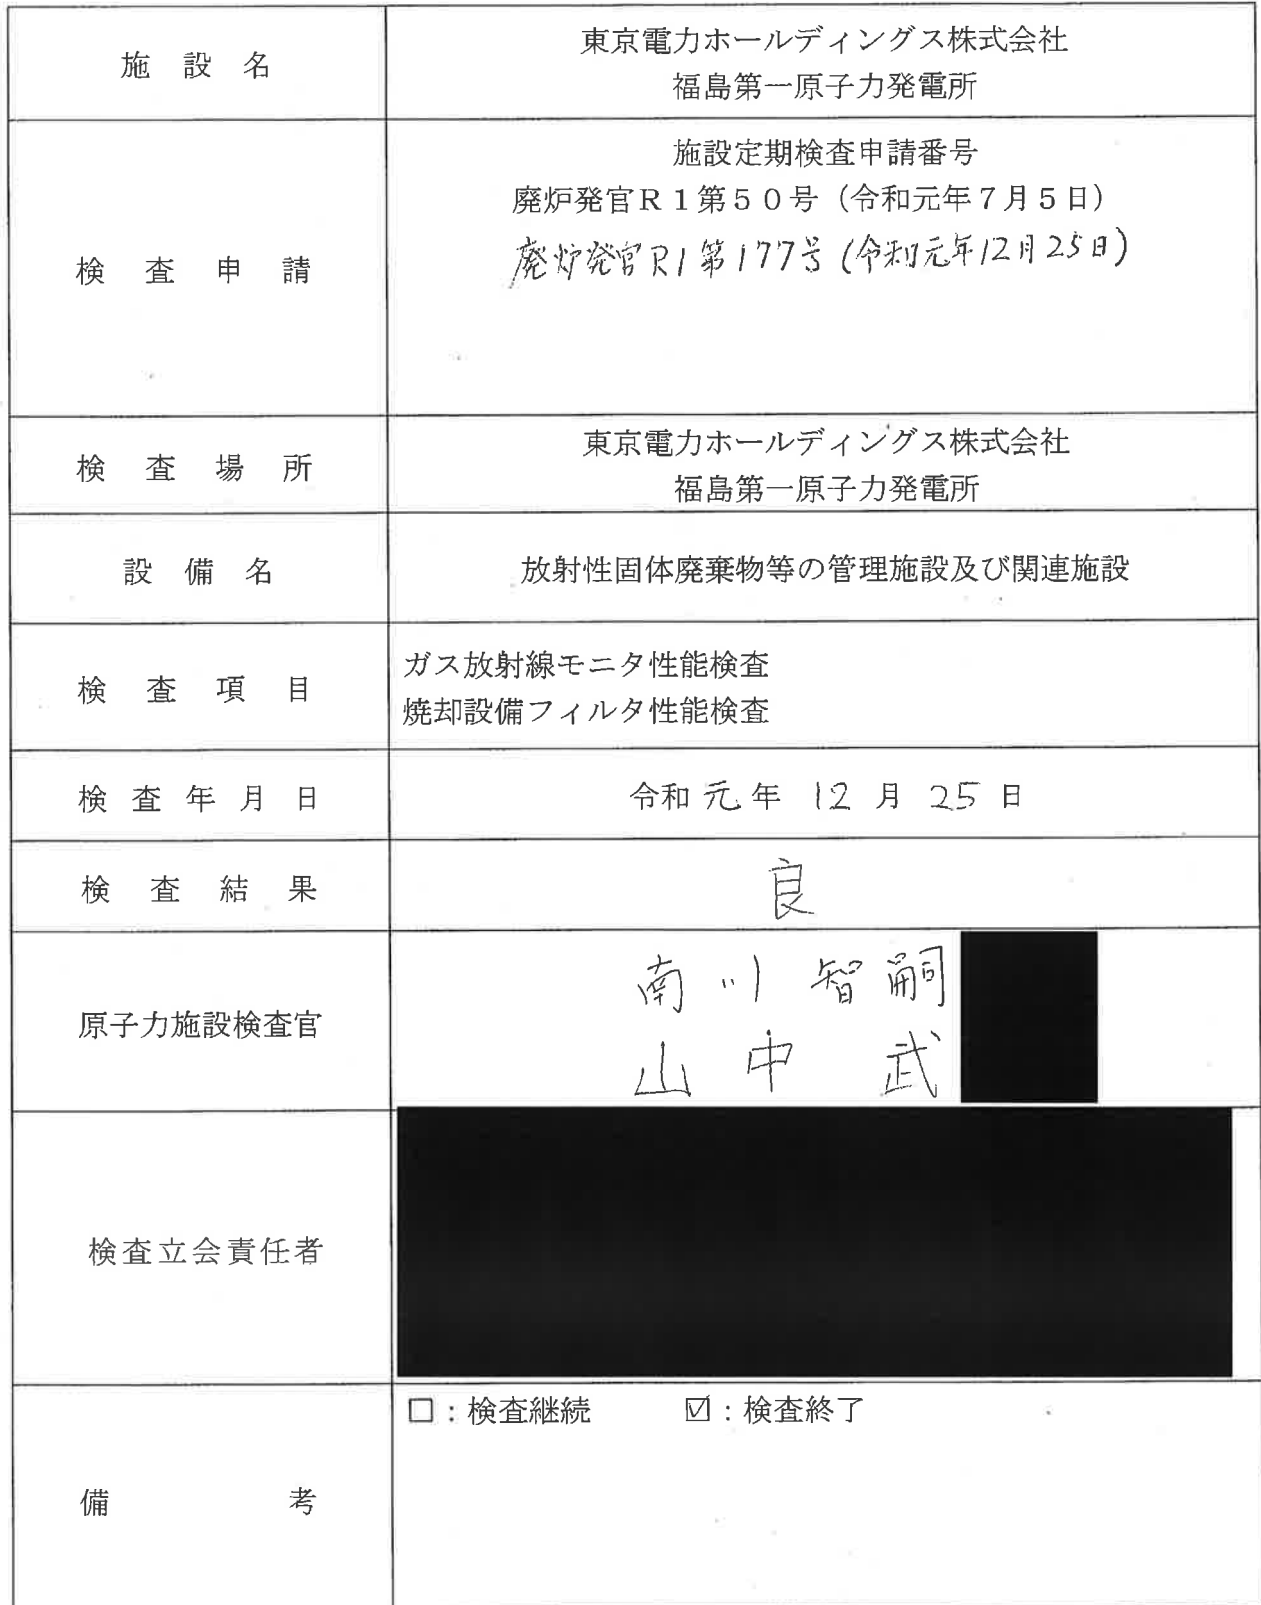 施設名
東京電力ホールディングス株式会社
福島第一原子力発電所
検査申請
施設定期検査申請番号
廃炉発官R1第50号(令和元年7月5日)
廃炉発官R1第177号(令和元年12月25日)
検査場所
東京電力ホールディングス株式会社
福島第一原子力発電所
設備名
放射性固体廃棄物等の管理施設及び関連施設
検査項目
ガス放射線モニタ性能検査
焼却設備フィルタ性能検査
検査年月日
令和元年12月25日
検査結果
良
原子力施設検査官
南川智嗣
山中武
検査立会責任者
備考
□:検査継続 ☑:検査終了